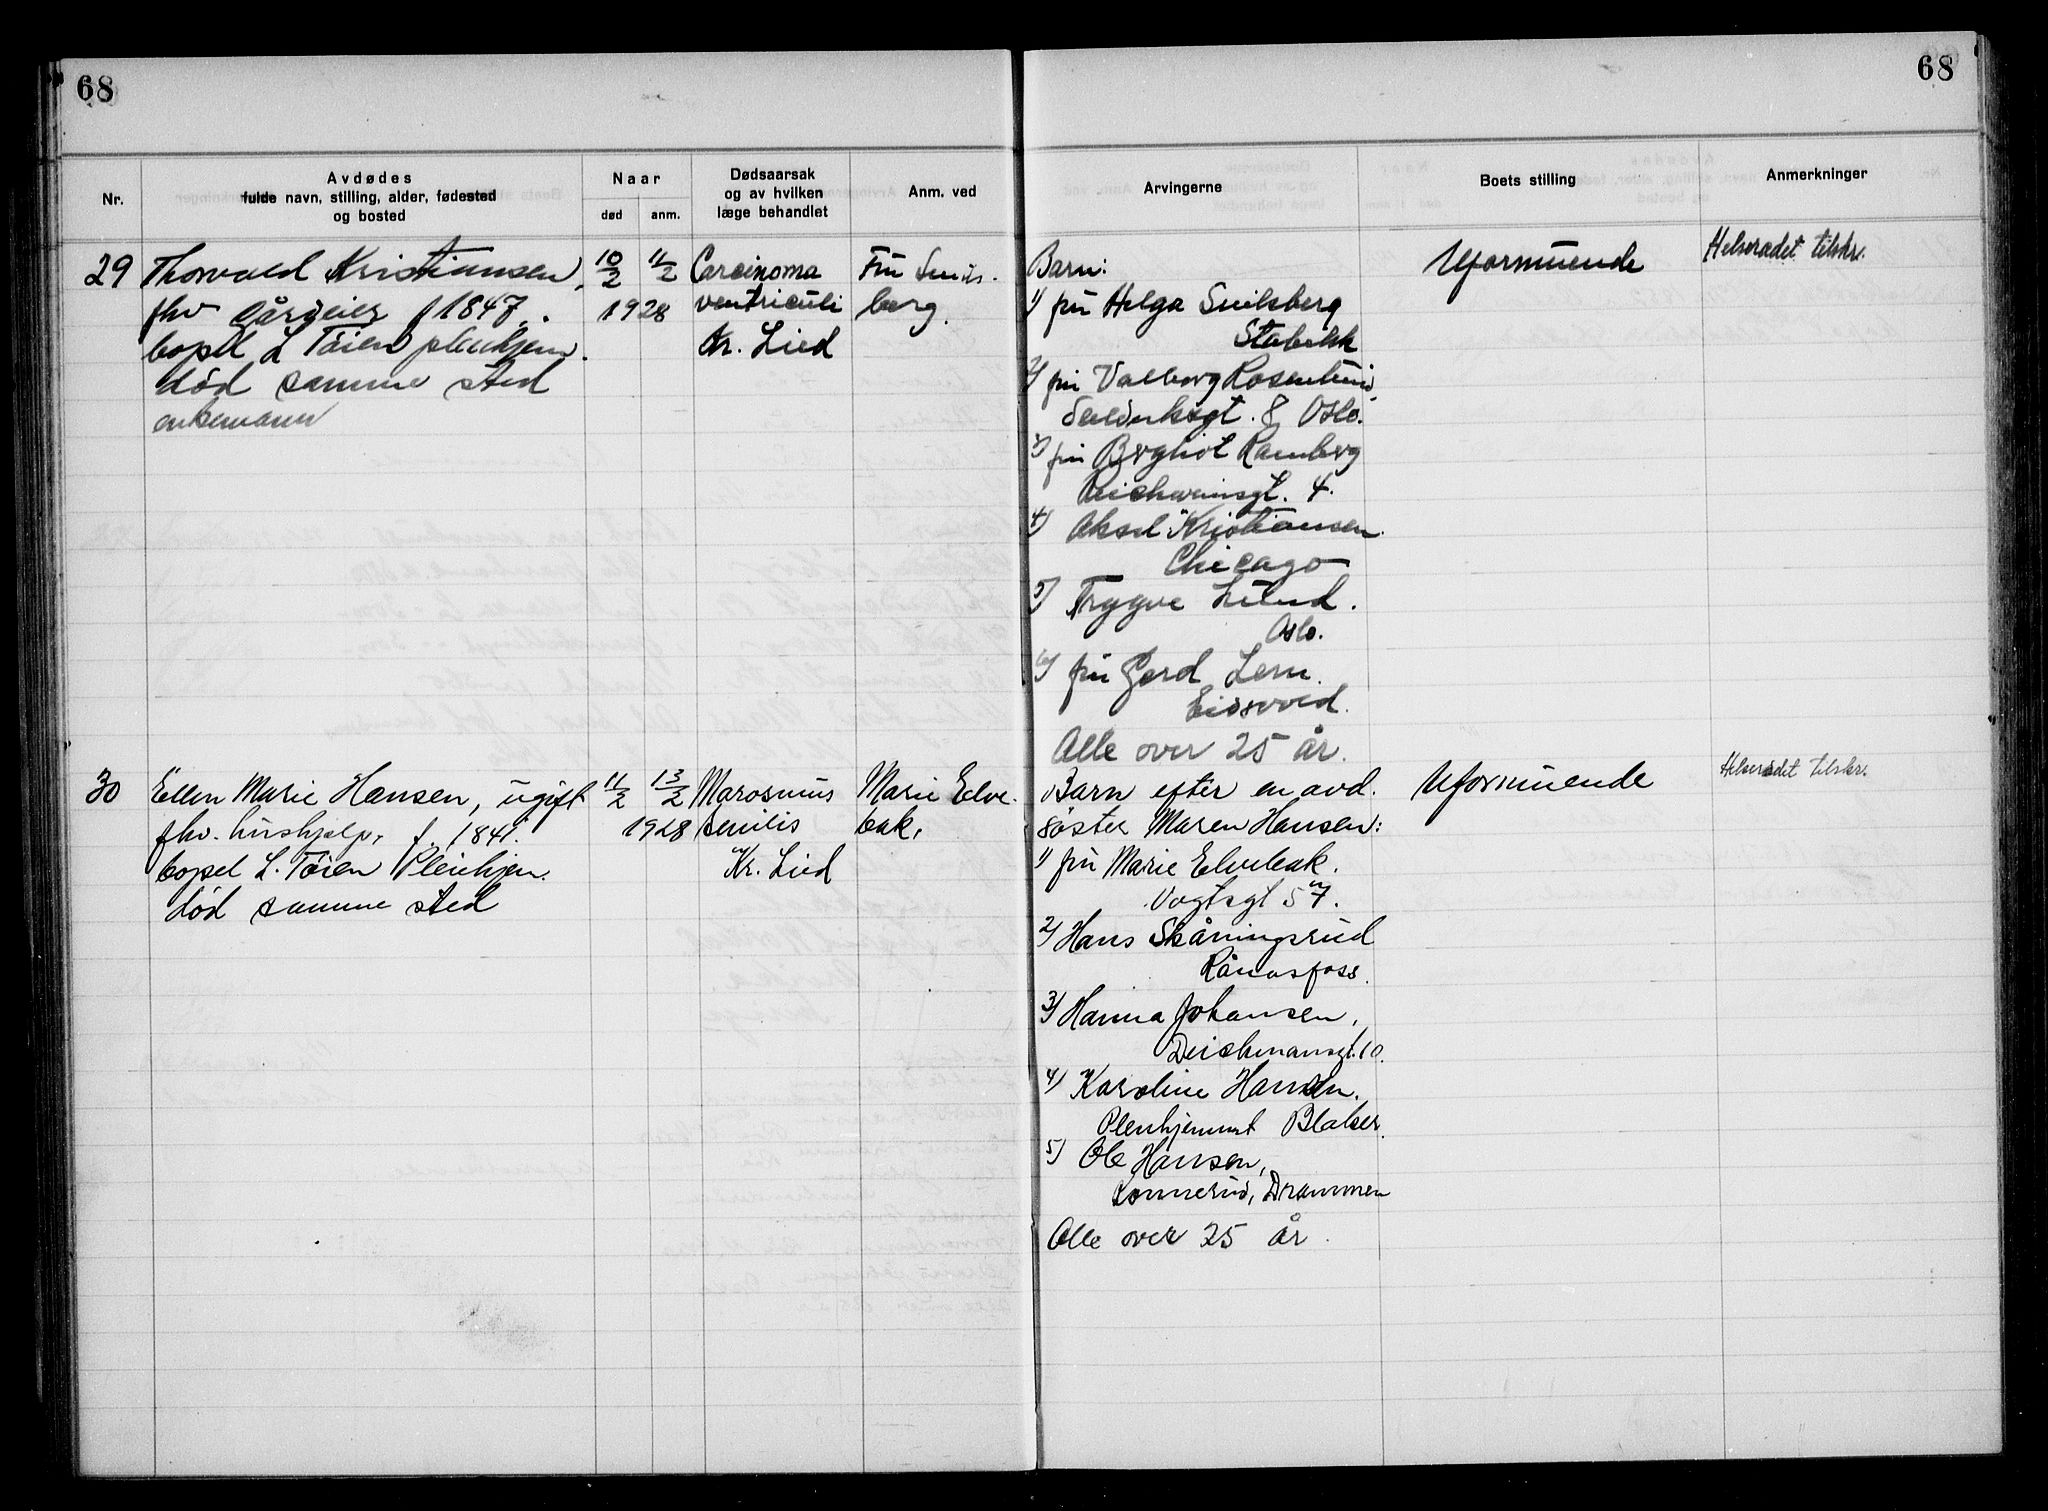 68
68
Nr.
Avdødes
fulde navn, stilling, alder, fødested
og bosted
Naar
død
anm.
Dødsaarsak
og av hvilken
læge behandlet
Anm. ved
Arvingerne
Boets stilling
Anmerkninger
29
Thorvald Kristiansen,
fhv gårdeier f 1847.
bopel L Tøien pleiehjem.
død samme sted
enkemann
10/2 11/2
1928
Carcinoma
ventriculi
Kr. Lied
Fru
berg.
Barn:
1) fru Helga
Stabekk
2) fru Valborg Rosenlund
8 Oslo.
3) fru Bergliot Ramberg
Reichweinsgt. 4.
4) Aksel Kristiansen.
Chicago
5) Trygve Lund.
Oslo.
6) fru Gerd
Eidsvold.
Alle over 25 år.
Uformuende
Helserådet tilskr.
30
Ellen Marie Hansen, ugift
fhv. hushjelp, f. 1841.
bopel L. Tøien Pleiehjem.
død samme sted
11/2 13/2
1928
Marasmus
senilis
Kr. Lied
Marie Elve-
bak,
Barn efter en avd.
søster Maren Hansen:
1) fru Marie Elvebak.
Vogtsgt 57.
2) Hans Skåningsrud
Rånåsfoss.
3) Hanna Johansen,
Deichmansgt. 10.
4) Karoline Hansen.
Pleiehjemmet Blaker.
5) Ole Hansen,
Konnerud, Drammen
Alle over 25 år.
Uformuende
Helserådet tilskr.